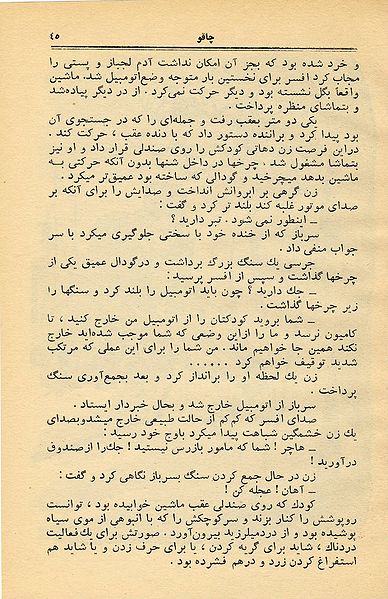 چاقو ۴۵
و خرد شده بود که بجز آن امکان نداشت آدم لجباز و پستی را
مجاب کرد افسر برای نخستین بار متوجه وضع اتومبیل شد. ماشین
واقعاً بگل نشسته بود و دیگر حرکت نمی‌کرد. از در دیگر پیاده‌شد
و بتماشای منظره پرداخت.
یکی دو متر بعقب رفت و جمله‌ای را که در جستجوی آن
بود پیدا کرد و براننده دستور داد که با دنده عقب، حرکت کند.
دراین فرصت زن دهاتی کودکش را روی صندلی قرار داد و او نیز
بتماشا مشغول شد. چرخها در داخل شنها بدون آنکه حرکتی به
ماشین بدهد میچرخید و گودالی که ساخته بود عمیق‌تر میکرد.
زن گرهی بر ابروانش انداخت و صدایش را برای آنکه بر
صدای موتور غلبه کند بلند تر کرد و گفت:
ـ اینطور نمی شود. تبر دارید؟
سرباز که از خنده خود با سختی جلوگیری میکرد با سر
جواب منفی داد.
جرسی یك سنگ بزرگ برداشت و درگودال عمیق یکی از
چرخها گذاشت و سپس از افسر پرسید:
ـ جك دارید؟ چون باید اتومبیل را بلند کرد و سنگها را
زیر چرخها گذاشت.
ـ شما بروید کودکتان را از اتومبیل من خارج کنید، تا
کامیون نرسد و ما را ازاین وضعی که شما موجب شده‌اید خارج
نکند همین جا خواهیم ماند. من شما را برای این عملی که مرتکب
شدید توقیف خواهم کرد ......
زن یك لحظه او را برانداز کرد و بعد بجمع‌آوری سنگ
پرداخت.
سرباز از اتومبیل خارج شد و بحال خبردار ایستاد.
صدای افسر که کم‌کم از حالت طبیعی خارج میشدوبصدای
یك زن خشمگین شباهت پیدا میکرد باوج خود رسید:
ـ هاچر! شما که مامور بازرس نیستید! جك‌را ازصندوق
درآورید!
زن در حال جمع کردن سنگ بسرباز نگاهی کرد و گفت:
ـ آهان! عجله کن!
کودك که روی صندلی عقب ماشین خوابیده بود، توانست
روپوشش را کنار بزند و سرکوچکش را که با انبوهی از موی سیاه
پوشیده بود و از دردمیلرزید بیرون‌آورد. صورتش برای یك فعالیت
دردناك، شاید برای گریه کردن، یا برای حرف زدن و یا شاید هم
استفراغ کردن زرد و درهم فشرده بود.